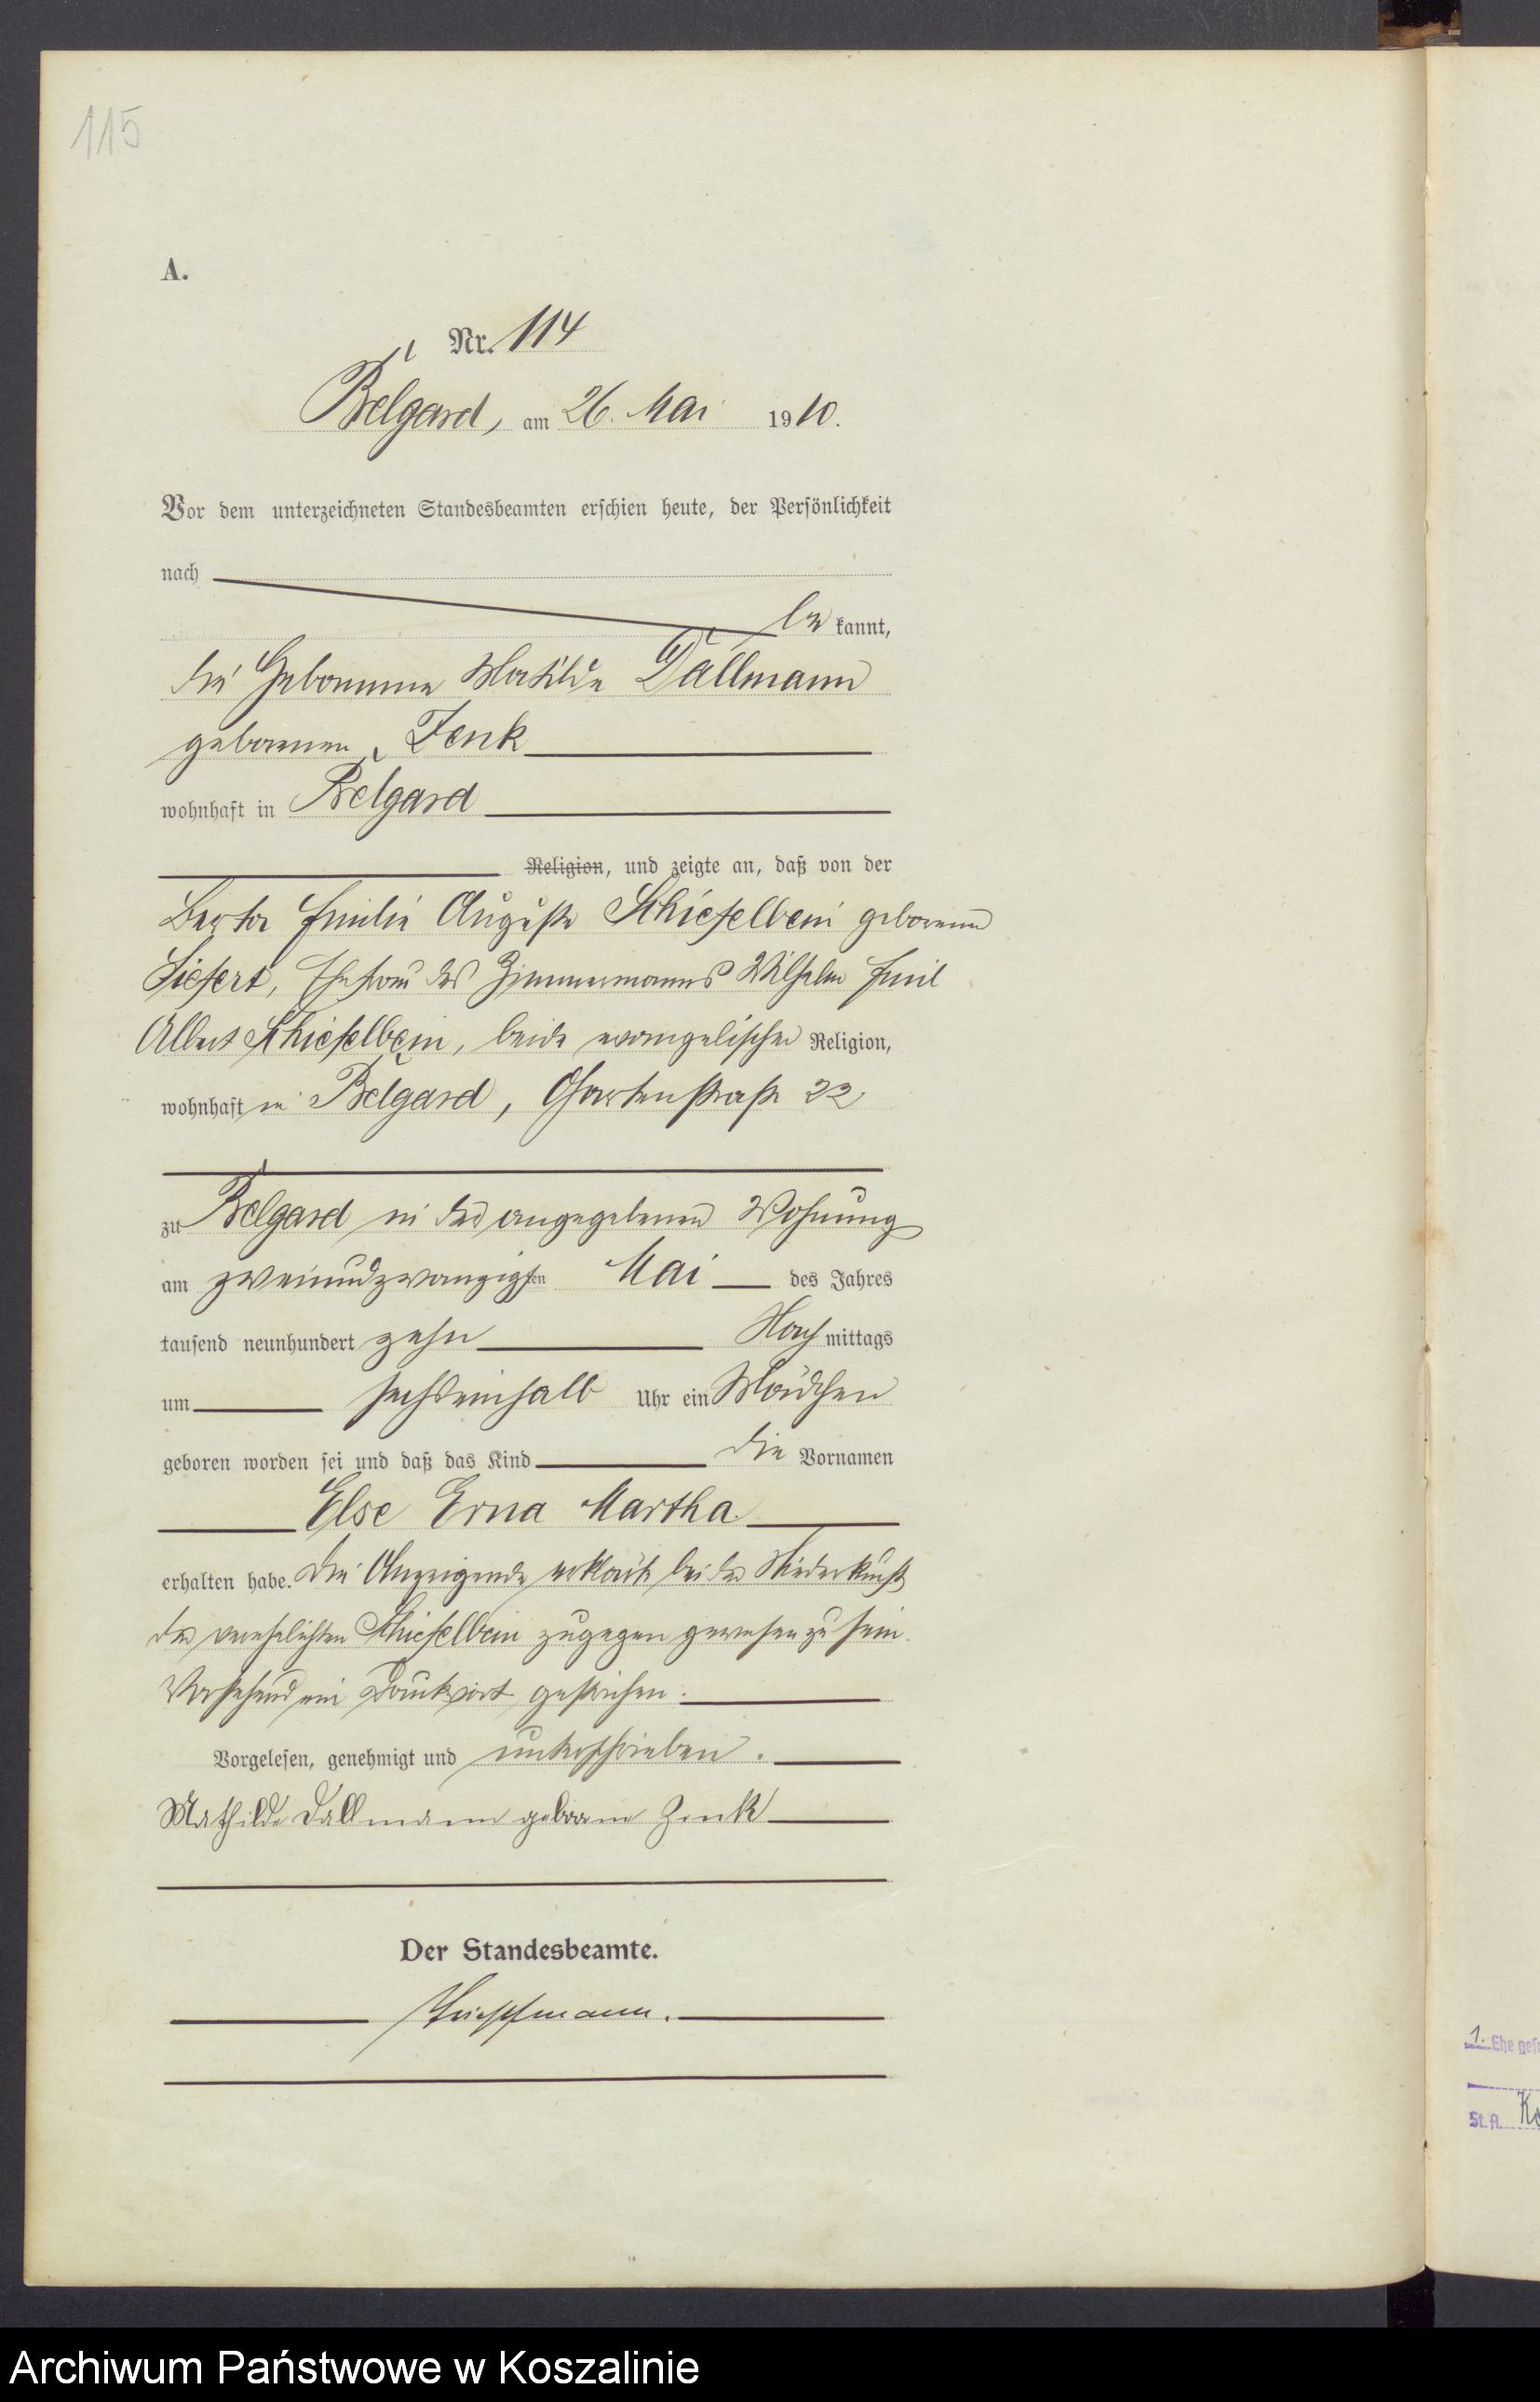 115
A.
Nr. 114
Belgard, am 26. Mai 1910.
Vor dem unterzeichneten Standesbeamten erschien heute, der Persönlichkeit
nach
be kannt,
die Hebamme Matilde Dallmann
geborene Zenk
wohnhaft in Belgard
Religion, und zeigte an, daß von der
Berta Emilie Auguste Schiefelbein geborene
Siefert, Ehefrau des Zimmermanns Wilhelm Emil
Albert Schiefelbein, beide evangelischer Religion,
wohnhaft in Belgard, Gartenstraße 22
zu Belgard in der angegebenen Wohnung
am zweiundzwanzigsten Mai des Jahres
tausend neunhundert zehn Nachmittags
um sechseinhalb Uhr ein Mädchen
geboren worden sei und daß das Kind die Vornamen
Else Erna Martha
erhalten habe. Die Anzeigende erklärte bei der Niederkunft
der verehelichten Schiefelbein zugegen gewesen zu sein.
Vorstehend ein Druckwort gestrichen.
Vorgelesen, genehmigt und unterschrieben.
Mathilde Dallmann geborne Zenk
Der Standesbeamte.
1. Ehe
St. A.
Archiwum Państwowe w Koszalinie